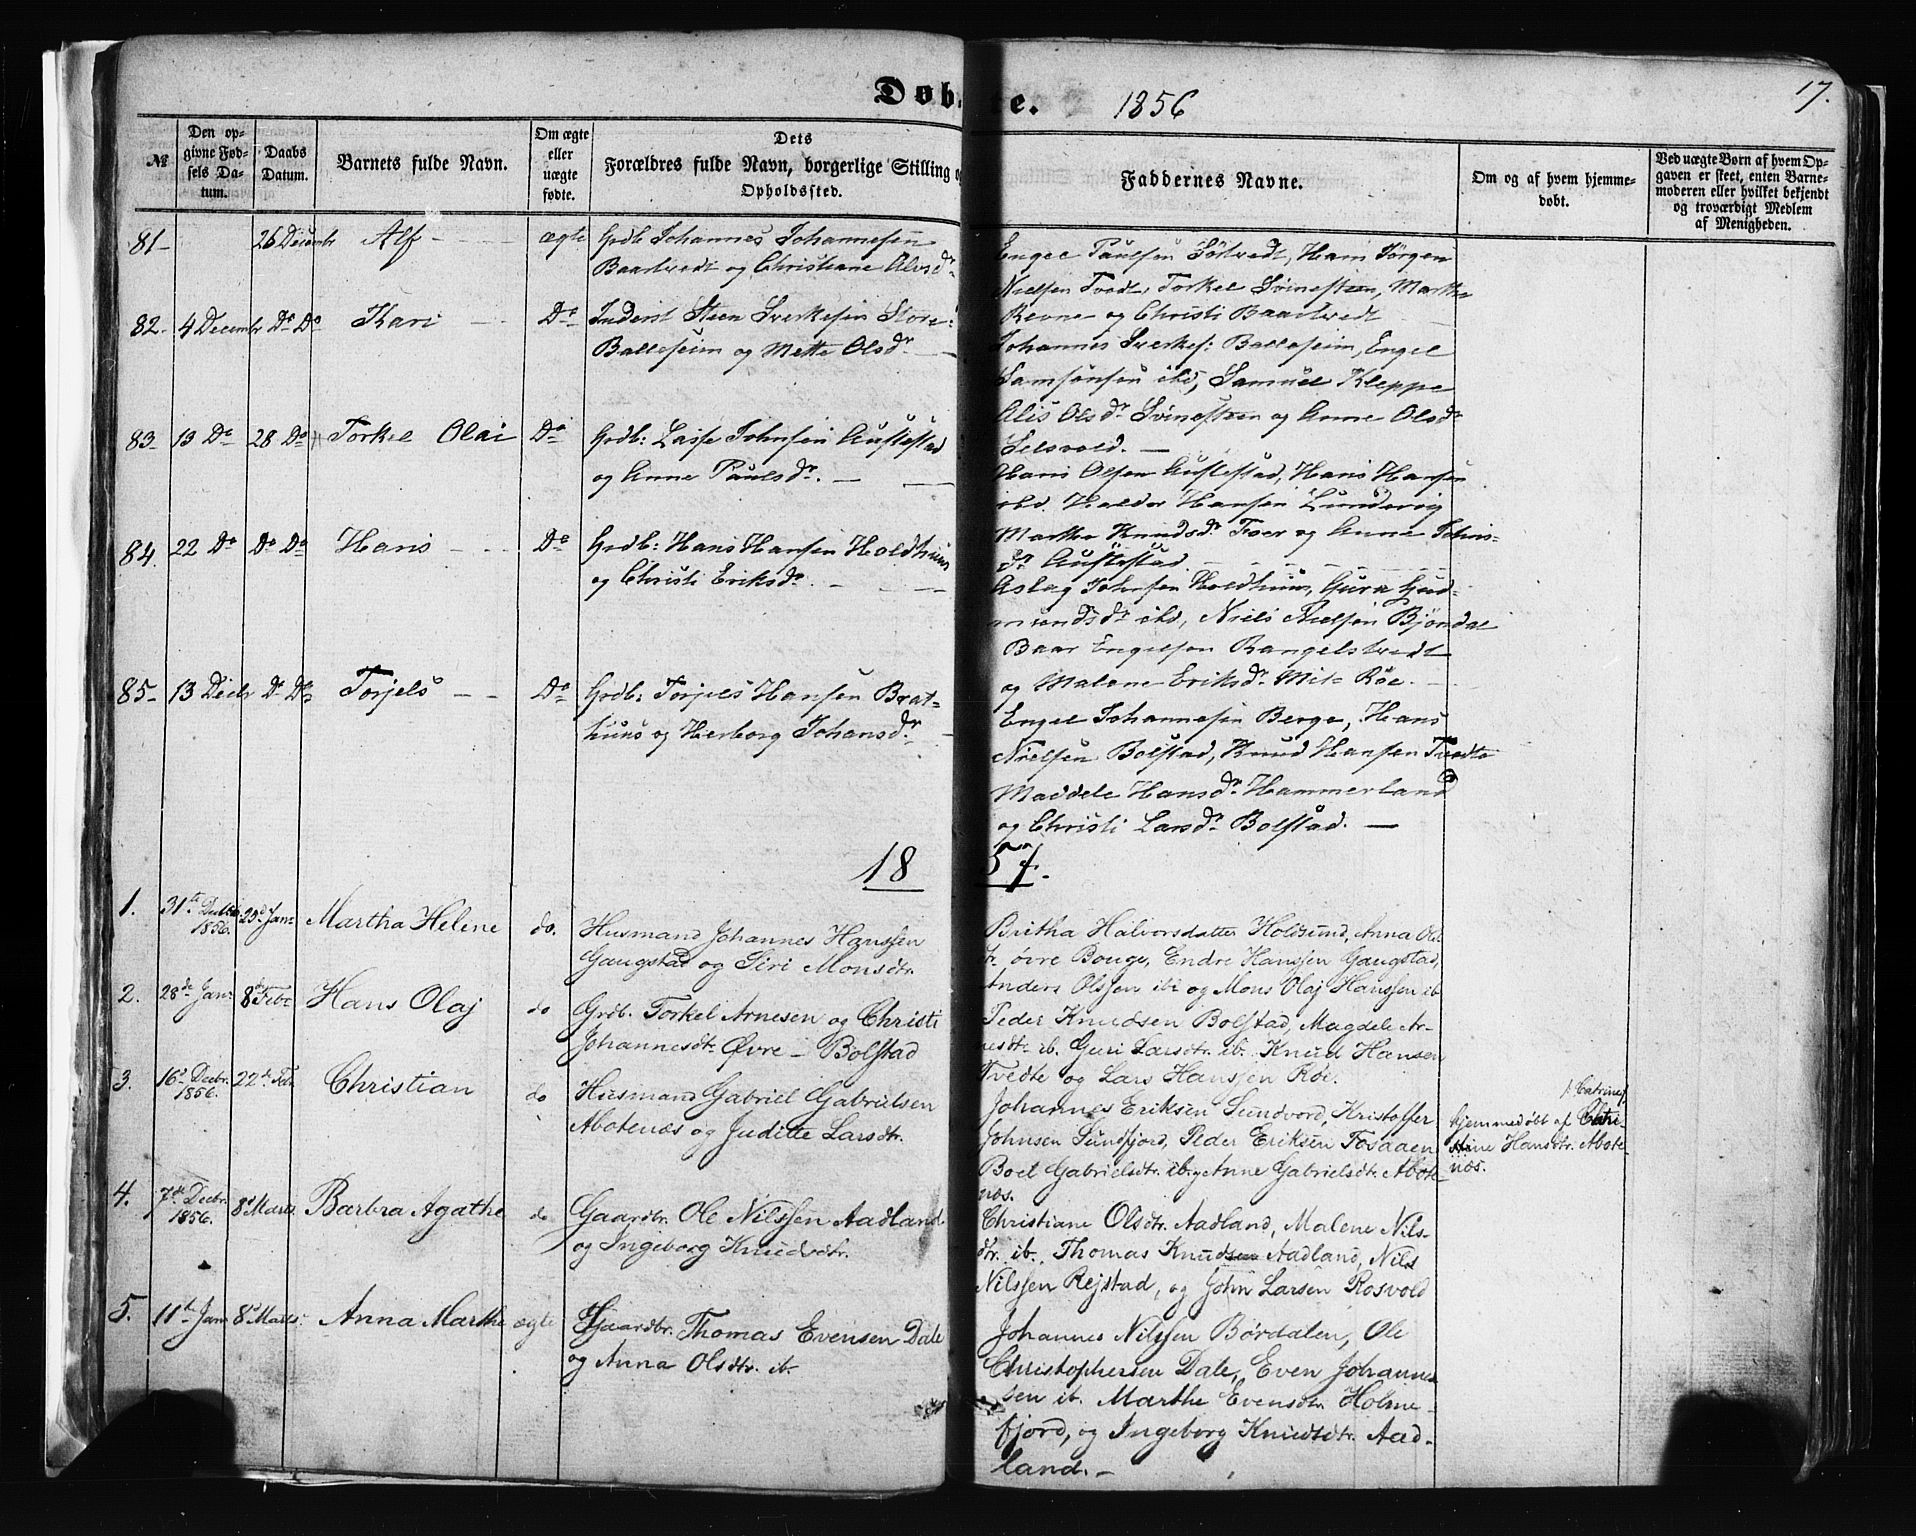 Døbte. 1856
17.
№
Den opgivne Fødsels Datum.
Daabs Datum.
Barnets fulde Navn.
Om ægte eller uægte fødte.
Dets Forældres fulde Navn, borgerlige Stilling og Opholdssted.
Faddernes Navne.
Om og af hvem hjemmedøbt.
Ved uægte Børn af hvem Opgaven er skeet, enten Barnemoderen eller hvilket bekjendt og troværdigt Medlem af Menigheden.
81- 26 Decembr Alf ægte Grdb Johannes Johannesen
Baartvedt og Christiane Alvsdr
Engel Paulsen Sörtvedt, Hans Jørgen
Nielsen Tvedt, Torkel Svinesteen, Marthe
Revne og Christi Baartvedt
82- 4 Decembr Do Do Kari Do Inderst Steen Sverkesen Store
Balleseim og Mette Olsdr
Johannes Sverkes: Balleseim, Engel
Samsonsen ibd, Samuel Kleppe
Alis Olsdr Svinesteen og Anne Olsdr
Selsvold.
83- 13 Do 28 Do Torkel Olai Do Grdb: Lasse Johnsen Austestad
og Anne Paulsdr.
Hans Olsen Austestad, Hans Hansen
ibd. Haldor Hansen Lundervig
Martha Knudsdr Tver og Anne Johns-
dr Austestad
84. 22 Do Do Do Hans Do Grdb: Hans Hansen Holdhuus
og Christi Eriksdr.
Aslag Johnsen Holdhuus, Gura Gud-
mundsdr ibd, Niels Nielsen Bjöndal
Baar Engelsen Rangelstvedt
og Malene Eriksdr Mit Röe.
85- 13 Decbr Do Do Torjels Do Grdb: Torjels Hansen Brat-
huus og Herborg Johansdr
Engel Johannesen Berge, Hans
Nielsen Bolstad, Knud Hansen Tvedte
Maddele Hansdr Hammerland
og Christi Larsdr Bolstad.
18 57.
1. 31te Decbr 1856. 25d Jan: Martha Helene do. Husmand Johannes Hanssen
Gaugstad og Siri Monsdtr.
Britha Halvorsdatter Holdsund, Anna Ols-
tr. øvre Bouge, Endre Hanssen Gaugstad,
Anders Olssen ib. og Mons Olaj Hanssen ib.
2. 28de Jan: 8de Febr Hans Olaj do Grdb. Torkel Arnesen og Christi
Johannesdtr Øvre-Bolstad
Peder Knudsen Bolstad, Magdele Ar-
nesdtr ib. Guri Larsdtr. ib. Knud Hansen
Tvedte og Lars Hanssen Röe.
3. 16d Decbr. 1856. 22de Feb. Christian do Husmand Gabriel Gabrielsen
Abotenæs og Juditte Larsdtr.
Johannes Eriksen Sundvord, Kristoffer
Johnsen Sundfjord, Peder Eriksen Fosdaaen
Boel Gabrielsdtr. ib. og Anne Gabrielsdtr. Abote-
næs.
Catrine
hjemmedøbt af Chri-
stine Hansdtr. Abote-
næs.
4. 7de Decbr. 1856. 8d Marts Barbra Agathe do Gaardbr. Ole Nilssen Aadland
og Ingeborg Knudsdtr.
Christiane Olsdtr. Aadland, Malene Nils-
dtr. ib. Thomas Knudsen Aadland, Nils
Nilssen Rejstad, og John Larsen Rosvold
5. 11te Jan 8d Marts: Anna Marthe ægte Gaardbr. Thomas Evensen Dale
og Anna Olsdtr. ib.
Johannes Nilssen Børdalen, Ole
Christophersen Dale, Even Johannes-
sen ib. Marthe Evensdtr. Holme-
fjord, og Ingeborg Knudsdtr. Aad-
land.